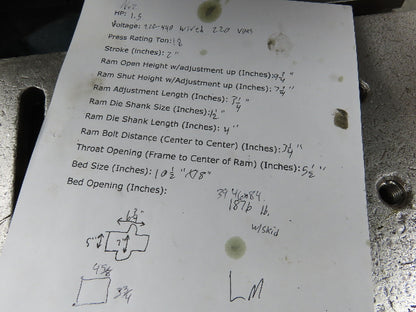 HP: 1.5
Voltage: 220-440 Wired 220 
Press Rating Ton: 18
Stroke (inches): 2"
Ram Open Height w/adjustment up (Inches): 9 3/4"
Ram Shut Height w/adjustment up (Inches): 7 3/4"
Ram Adjustment Length (Inches): 2 1/4"
Ram Die Shank Size (Inches): 1 1/2"
Ram Die Shank Length (Inches): 4"
Ram Bolt Distance (Center to Center) (Inches): 3 1/4"
Throat Opening (Frame to Center of Ram) (Inches): 5 1/2"
Bed Size (Inches): 10 1/2" X 18"
Bed Opening (Inches):
1876 lb.
w/skid
6 3/4"
5"
7"
3 3/4
LM